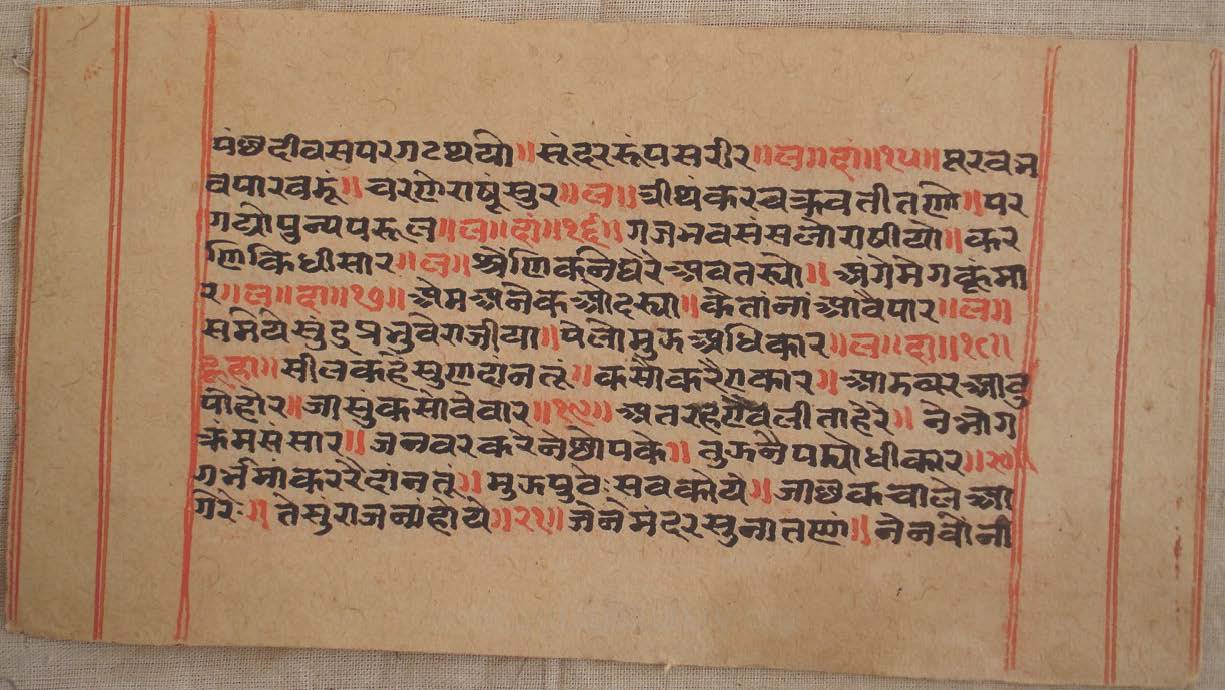 पंछदीवसपरगटथयो॥सूंदररूंपसरीर॥ल॥दां॥१५॥सरवन
वपारवरूं॥चरणेराषुंसुर॥ल॥त्रीथंकरचक्रवतीतणो॥पर
गट्योपुन्यपरूल॥ल॥दां॥१६॥गजभवसंसलोराषीयो॥कर
णिकिधीसार॥ल॥श्रेणिकनेघेरेअवतस्यो॥अंगेमेगकूंमा
र॥ल॥दा॥१७॥अेमअनेकओदस्या॥केतांनांआवेपार॥ल॥
समेयेसुंद्रप्रभुवेराजीया॥पेलोमुझअधिकार॥ल॥दा॥१८॥
दूहा॥सीलकहेसुणदांनतूं॥कसोकरेगकार॥आडम्बरआठु
पोहोर॥जासुंकसोवेवार॥१९॥अतरहेगेवलीताहेरे॥नेभोग
क्रंमसंसार॥जनवरकरनेछोपके॥तुझनेपड्योधीकार॥२०॥
गर्भमाकररेदांनतूं॥मुझपुंवेःसवकोये॥जाछकचालेआ
गेरेः॥तेसुंराजन्यांहोये॥२१॥जेनेमंदरसुनातणां॥नेनवोनी